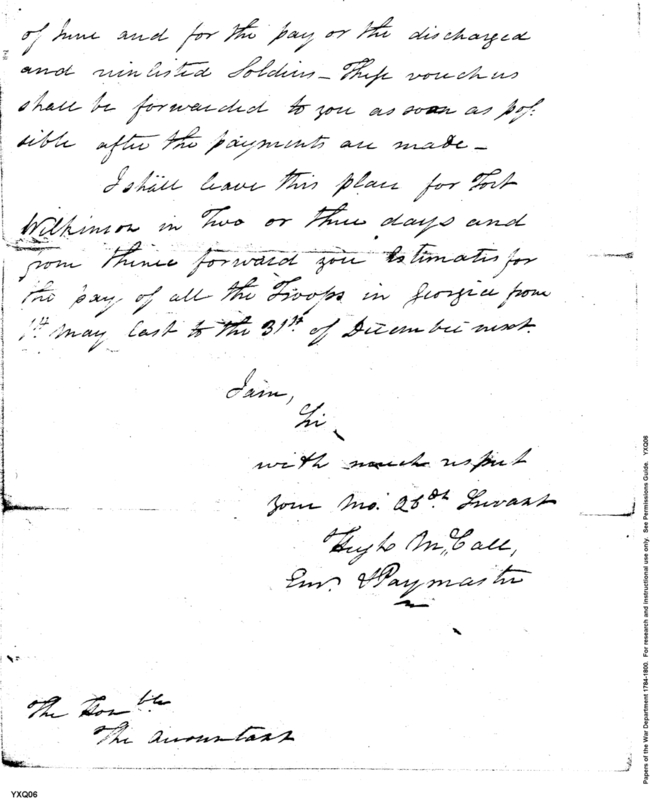 of June and for the pay of the discharged
and reinlisted Soldiers – These vouchers
shall be forwarded to you as soon as pos:
sible after the payments are made –
I shall leave this place for Fort
Wilkinson in Two or three days and
from thence forward you Estimates for
the pay of all the Troops in Georgia from
1st May last to the 31st of December next.
I am,
Sir
with much respect
your Mo. Obdt. Servant
Hugh McCall,
Ens. & Paymaster
The Honble
The Accountant
YXQ06
Papers of the War Department 1784-1800. For research and instructional use only. See Permissions Guide. YXQ06